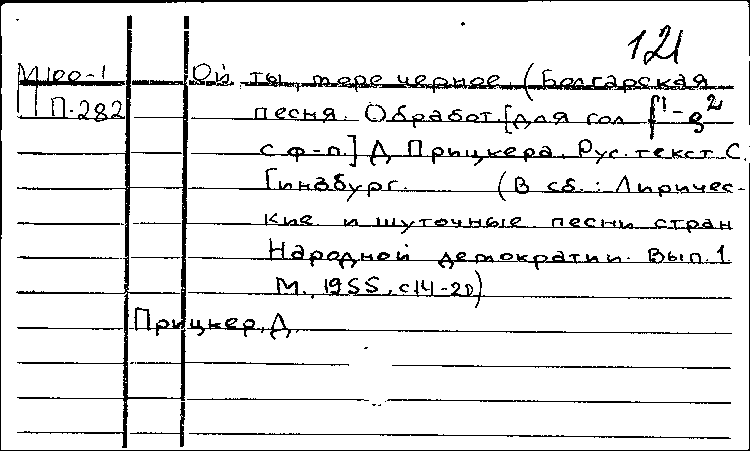 121
М100-1 Ой, ты, море черное. (Болгарская
П.282 песня. Обработ. [для гол f¹-g²
с ф-п.] Д Прицкера. Рус. текст С.
Гинзбург. (В сб.: Лиричес-
кие и шуточные песни стран
Народной демократии. Вып.1
М., 1955, с14-20)
Прицкер, Д.